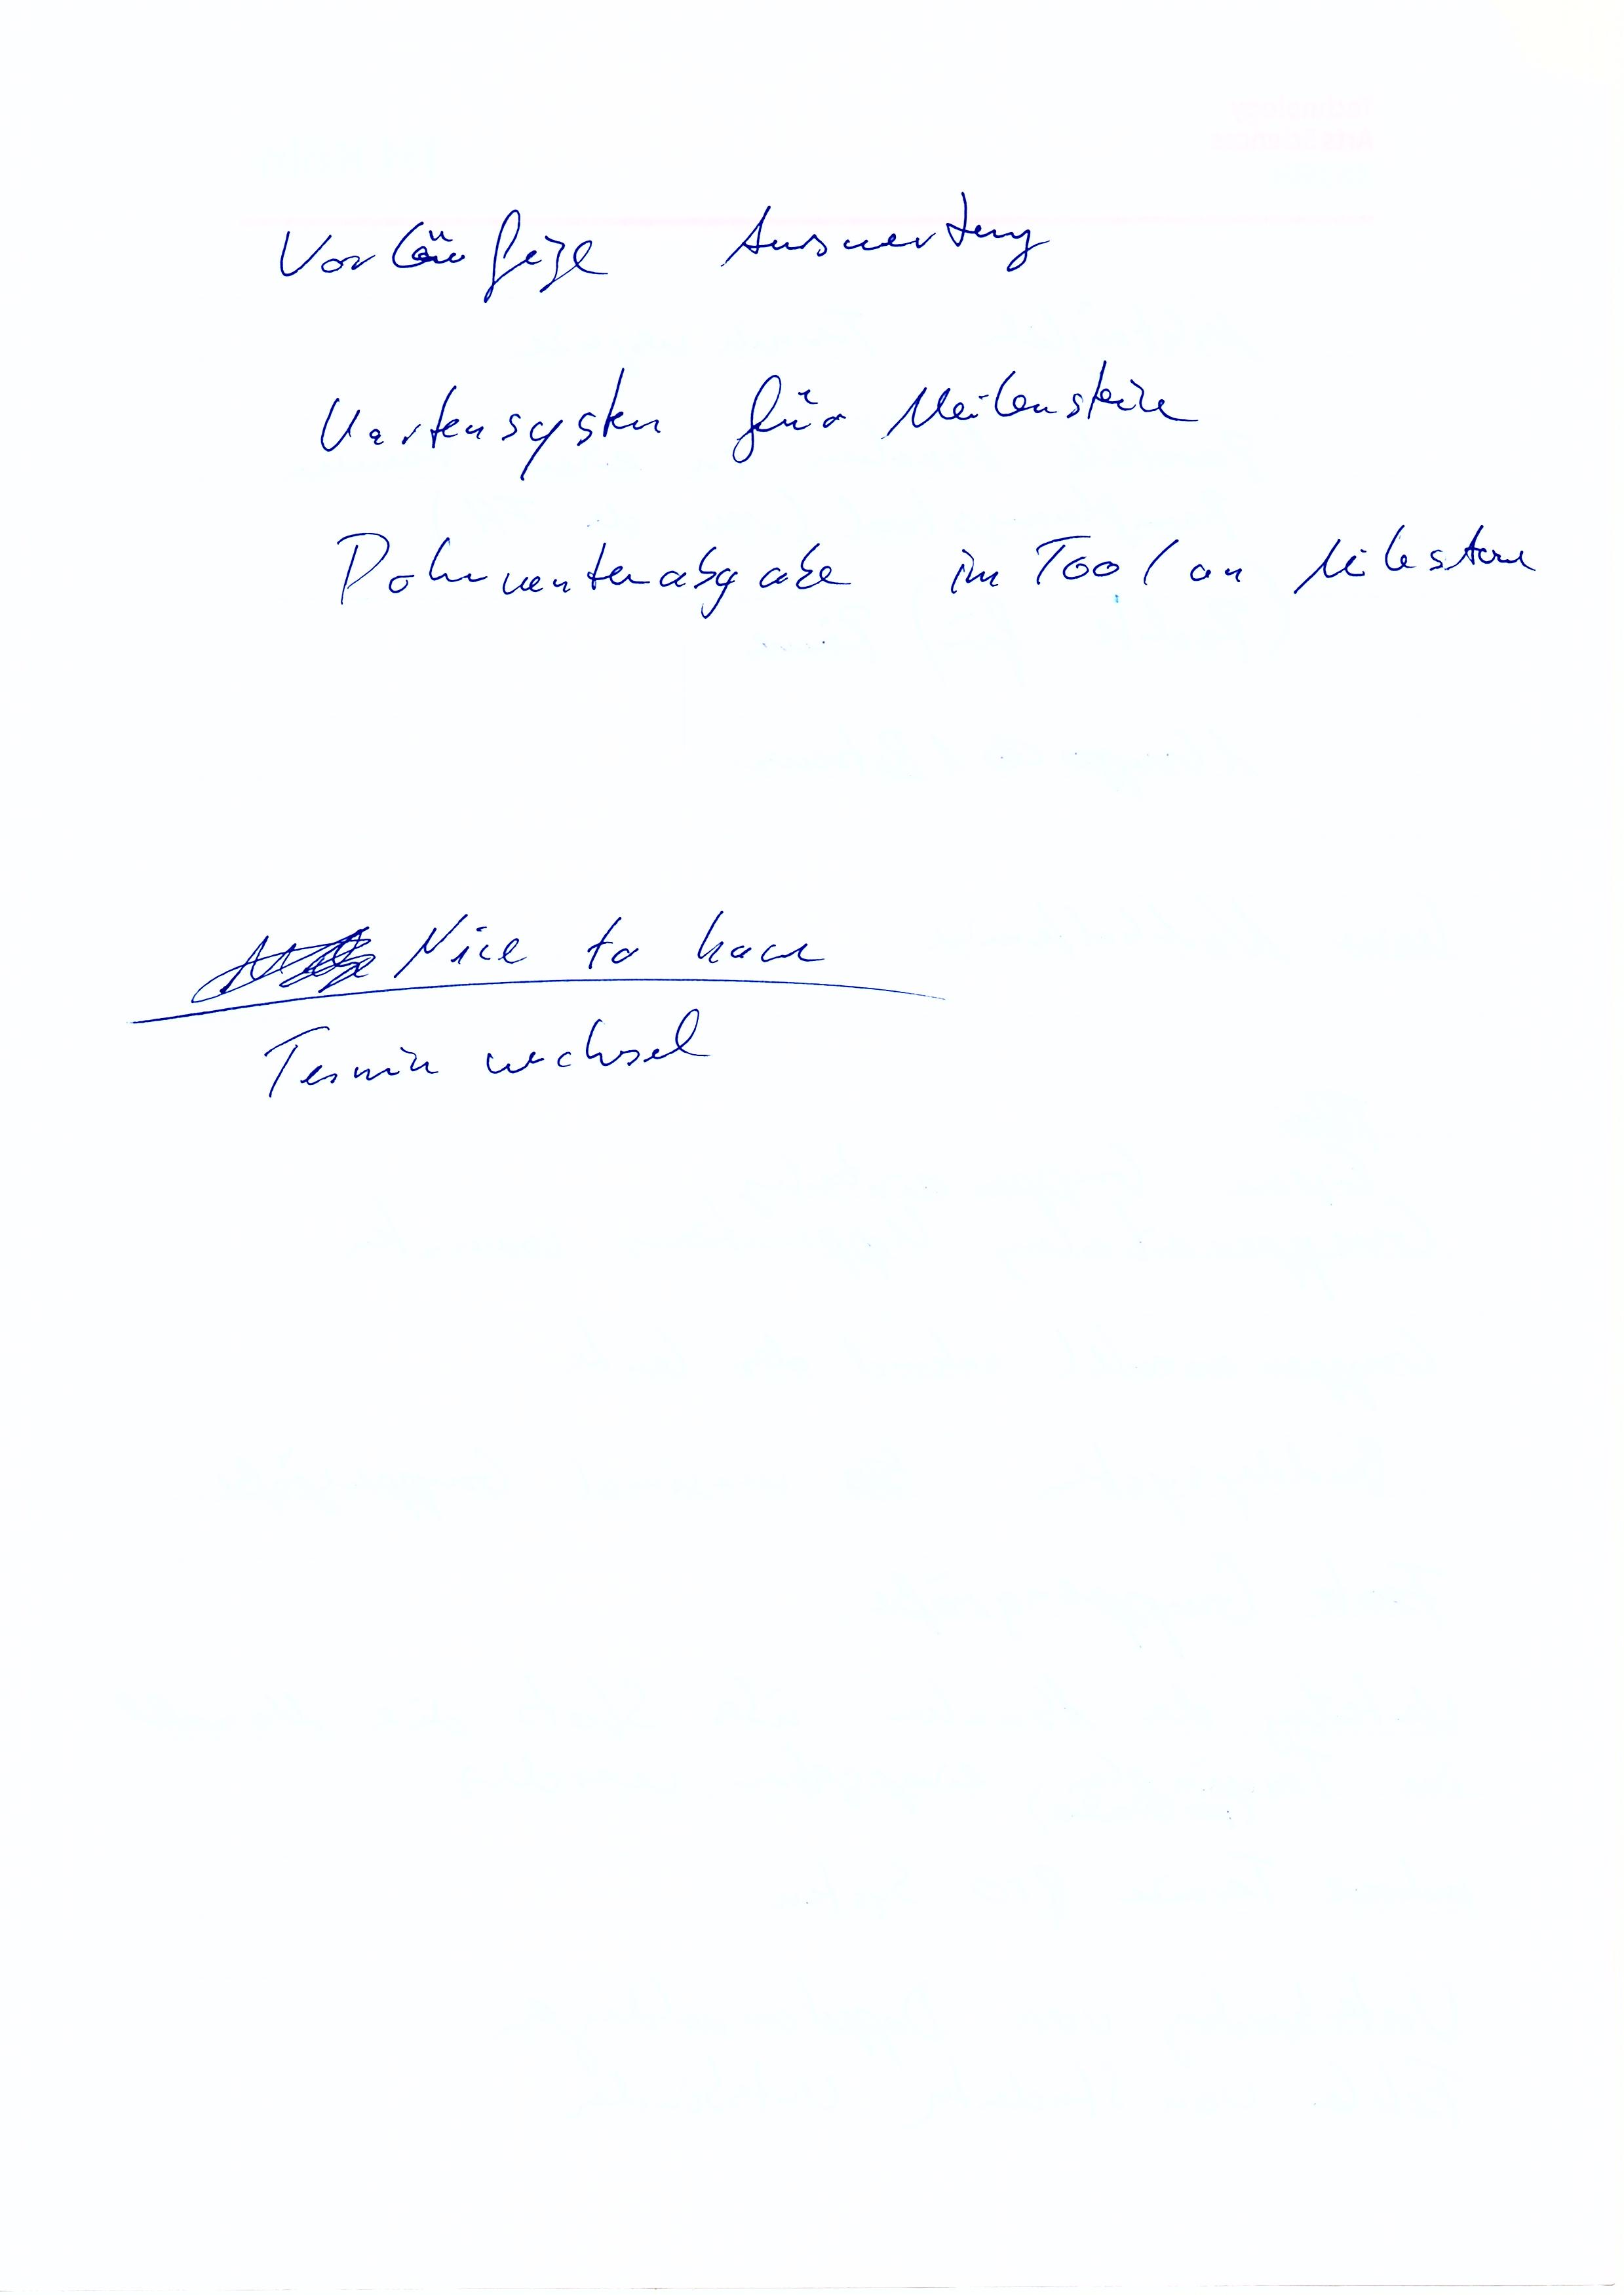 Vorläufige Auswertung
Kartensystem für Meilensteine
Dokumentenabgabe im Tool an Milestone
Nice to have
Terminwechsel